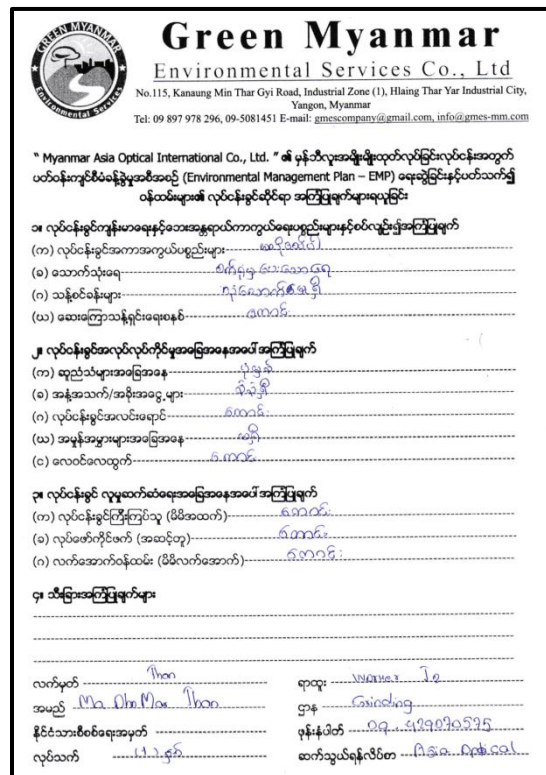 GREEN MYANMAR
Environmental Services
Green Myanmar
Environmental Services Co., Ltd
No.115, Kanaung Min Thar Gyi Road, Industrial Zone (1), Hlaing Thar Yar Industrial City,
Yangon, Myanmar
Tel: 09 897 978 296, 09-5081451 E-mail: gmescompany@gmail.com, info@gmes-mm.com
" Myanmar Asia Optical International Co., Ltd. " ၏ မှန်ဘီလူးအမျိုးမျိုးထုတ်လုပ်ခြင်းလုပ်ငန်းအတွက်
ပတ်ဝန်းကျင်စီမံခန့်ခွဲမှုအစီအစဉ် (Environmental Management Plan – EMP) ရေးဆွဲခြင်းနှင့်ပတ်သက်၍
ဝန်ထမ်းများ၏ လုပ်ငန်းခွင်ဆိုင်ရာ အကြံပြုချက်များရယူခြင်း
၁။ လုပ်ငန်းခွင်ကျန်းမာရေးနှင့်ဘေးအန္တရာယ်ကာကွယ်ရေးပစ္စည်းများနှင့်စပ်လျဉ်း၍အကြံပြုချက်
(က) လုပ်ငန်းခွင်အကာအကွယ်ပစ္စည်းများ
(ခ) သောက်သုံးရေ စက်ရုံမှ ပေးသောရေ
(ဂ) သန့်စင်ခန်းများ လုံလောက်စွာရှိ
(ဃ) ဆေးကြောသန့်ရှင်းရေးစနစ် ကောင်း
၂။ လုပ်ငန်းခွင်အလုပ်လုပ်ကိုင်မှုအခြေအနေအပေါ် အကြံပြုချက်
(က) ဆူညံသံများအခြေအနေ ပုံမှန်
(ခ) အနံ့အသက်/အခိုးအငွေ့များ
(ဂ) လုပ်ငန်းခွင်အလင်းရောင် ကောင်း
(ဃ) အမှုန်အမွှားများအခြေအနေ မရှိ
(င) လေဝင်လေထွက် ကောင်း
၃။ လုပ်ငန်းခွင် လူမှုဆက်ဆံရေးအခြေအနေအပေါ် အကြံပြုချက်
(က) လုပ်ငန်းခွင်ကြီးကြပ်သူ (မိမိအထက်) ကောင်း
(ခ) လုပ်ဖော်ကိုင်ဖက် (အဆင့်တူ) ကောင်း
(ဂ) လက်အောက်ဝန်ထမ်း (မိမိလက်အောက်) ကောင်း
၄။ သီးခြားအကြံပြုချက်များ
လက်မှတ် Thon
ရာထူး Worker
အမည် Ma Oho Mar Thon
ဌာန Grinding
နိုင်ငံသားစိစစ်ရေးအမှတ်
ဖုန်းနံပါတ် 09. 429070575
လုပ်သက်
ဆက်သွယ်ရန်လိပ်စာ Asia Optical